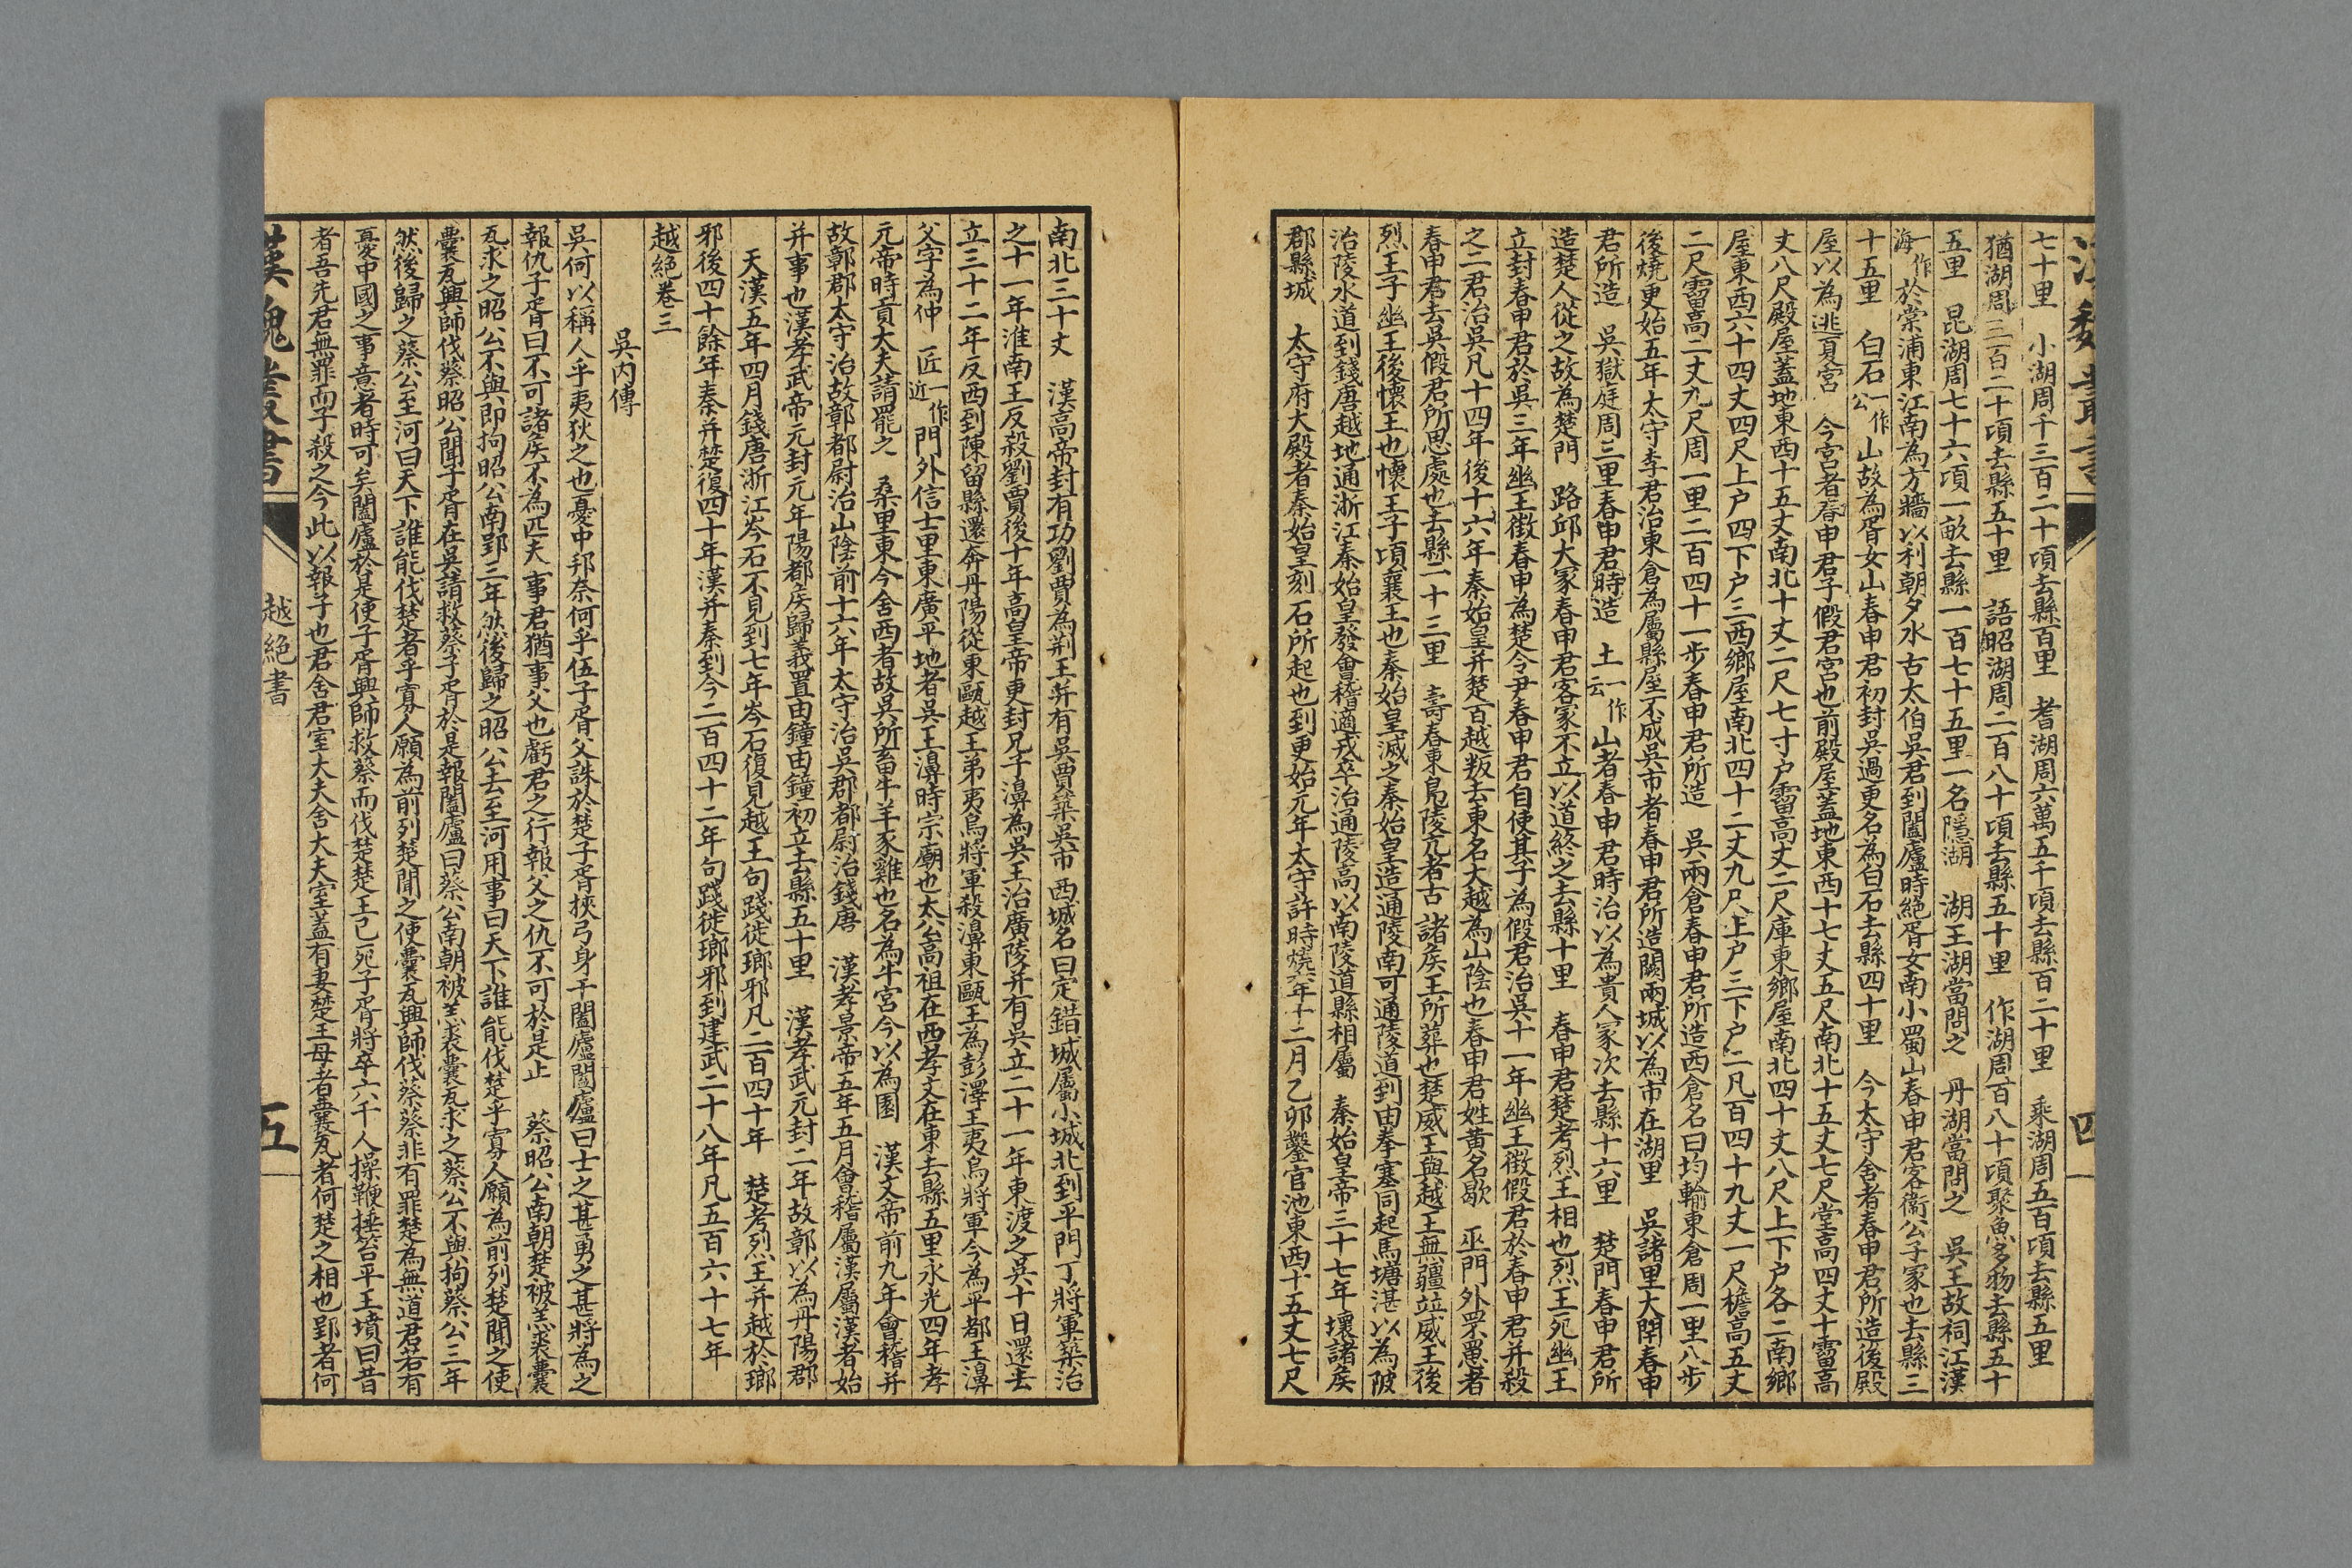 漢魏叢書
四
七十里　小湖周千三百二十頃去縣百里　耆湖周六萬五千頃去縣百二十里　乘湖周五百頃去縣五里
猶湖周三百二十頃去縣五十里　語昭湖周二百八十頃去縣五十里　作湖周百八十頃聚魚多物去縣五十
五里　昆湖周七十六頃一畝去縣一百七十五里一名隱湖　湖王湖當問之　丹湖當問之　吳王故祠江漢
一作海於棠浦東江南為方牆以利朝夕水古太伯吳君到闔廬時絕胥女南小蜀山春申君客衞公子冢也去縣三
十五里　白石一作公山故為胥女山春申君初封吳過更名為白石去縣四十里　今太守舍者春申君所造後殿
屋以為逃夏宮　今宮者春申君子假君宮也前殿屋蓋地東西十七丈五尺南北十五丈七尺堂高四丈十霤高
丈八尺殿屋蓋地東西十五丈南北十丈二尺七寸戶霤高丈二尺庫東鄉屋南北四十丈八尺上下戶各二南鄉
屋東西六十四丈四尺上戶四下戶三西鄉屋南北四十二丈九尺上戶三下戶二凡百四十九丈一尺檐高五丈
二尺霤高二丈九尺周一里二百四十一步春申君所造　吳兩倉春申君所造西倉名曰均輸東倉周一里八步
後燒更始五年太守李君治東倉為屬縣屋不成吳市者春申君所造闕兩城以為市在湖里　吳諸里大閈春申
君所造　吳獄庭周三里春申君時造　土一作云山者春申君時治以為貴人冢次去縣十六里　楚門春申君所
造楚人從之故為楚門　路邱大冢春申君客冢不立以道終之去縣十里　春申君楚考烈王相也烈王死幽王
立封春申君於吳三年幽王徵春申為楚令尹春申君自使其子為假君治吳十一年幽王徵假君於春申君并殺
之二君治吳凡十四年後十六年秦始皇并楚百越叛去東名大越為山陰也春申君姓黃名歇　巫門外罘罳者
春申君去吳假君所思處也去縣二十三里　壽春東鳧陵亢者古諸矦王所葬也楚威王與越王無疆竝威王後
烈王子幽王後懷王也懷王子頃襄王也秦始皇滅之秦始皇造通陵南可通陵道到由拳塞同起馬塘湛以為陂
治陵水道到錢唐越地通浙江秦始皇發會稽適戍卒治通陵高以南陵道縣相屬　秦始皇帝三十七年壞諸矦
郡縣城　太守府大殿者秦始皇刻石所起也到更始元年太守許時燒六年十二月乙卯鑿官池東西十五丈七尺
南北三十丈　漢高帝封有功劉賈為荆王并有吳賈築吳市西城名曰定錯城屬小城北到平門丁將軍築治
之十一年淮南王反殺劉賈後十年高皇帝更封兄子濞為吳王治廣陵并有吳立二十一年東渡之吳十日還去
立三十二年反西到陳留縣還奔丹陽從東甌越王弟夷烏將軍殺濞東甌王為彭澤王夷烏將軍今為平都王濞
父字為仲　匠一作近門外信士里東廣平地者吳王濞時宗廟也太公高祖在西孝文在東去縣五里永光四年孝
元帝時貢大夫請罷之　桑里東今舍西者故吳所畜牛羊豕雞也名為牛宮今以為園　漢文帝前九年會稽并
故鄣郡太守治故鄣都尉治山陰前十六年太守治吳郡都尉治錢唐　漢孝景帝五年五月會稽屬漢屬漢者始
并事也漢孝武帝元封元年陽都矦歸義置由鐘由鐘初立去縣五十里　漢孝武元封二年故鄣以為丹陽郡
　天漢五年四月錢唐浙江岑石不見到七年岑石復見越王句踐徙瑯邪凡二百四十年　楚考烈王并越於瑯
邪後四十餘年秦并楚復四十年漢并秦到今二百四十二年句踐徙瑯邪到建武二十八年凡五百六十七年
越絕卷三
　　吳內傳
吳何以稱人乎夷狄之也憂中邦奈何乎伍子胥父誅於楚子胥挾弓身干闔廬闔廬曰士之甚勇之甚將為之
報仇子胥曰不可諸矦不為匹夫事君猶事父也虧君之行報父之仇不可於是止　蔡昭公南朝楚被羔裘囊
瓦求之昭公不與即拘昭公南郢三年然後歸之昭公去至河用事曰天下誰能伐楚乎寡人願為前列楚聞之使
囊瓦興師伐蔡昭公聞子胥在吳請救蔡子胥於是報闔廬曰蔡公南朝被羔裘囊瓦求之蔡公不與拘蔡公三年
然後歸之蔡公至河曰天下誰能伐楚者乎寡人願為前列楚聞之使囊瓦興師伐蔡蔡非有罪楚為無道君若有
憂中國之事意者時可矣闔廬於是使子胥興師救蔡而伐楚楚王已死子胥將卒六千人操鞭捶笞平王墳曰昔
者吾先君無罪而子殺之今此以報子也君舍君室大夫舍大夫室蓋有妻楚王母者囊瓦者何楚之相也郢者何
漢魏叢書
越絕書
五